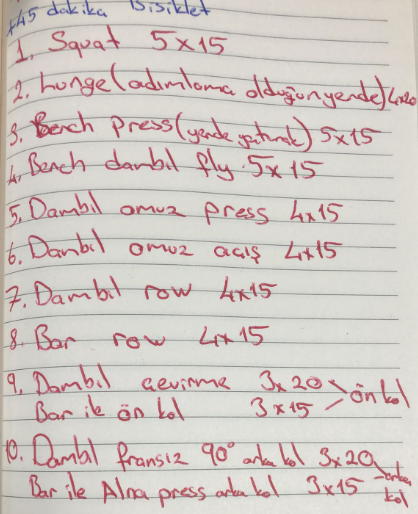 45 dakika Bisiklet
1. Squat 5x15
2. Lunge (adımlama olduğun yerde) 4x20
3. Bench press (yerde yatarak) 5x15
4. Bench dambıl fly 5x15
5. Dambıl omuz press 4x15
6. Dambıl omuz açış 4x15
7. Dambıl row 4x15
8. Bar row 4x15
9. Dambıl çevirme 3x20
Bar ile ön kol 3x15 > ön kol
10. Dambıl fransız 90° arka kol 3x20
Bar ile Alna press arka kol 3x15 - arka kol